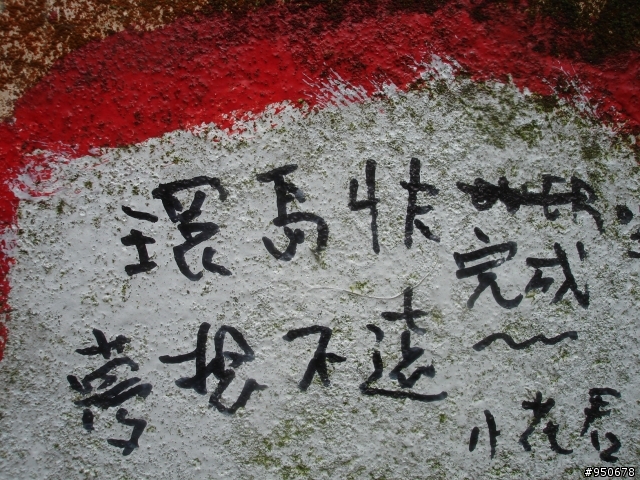 環島快
完成~
夢不遠
小君
#950678